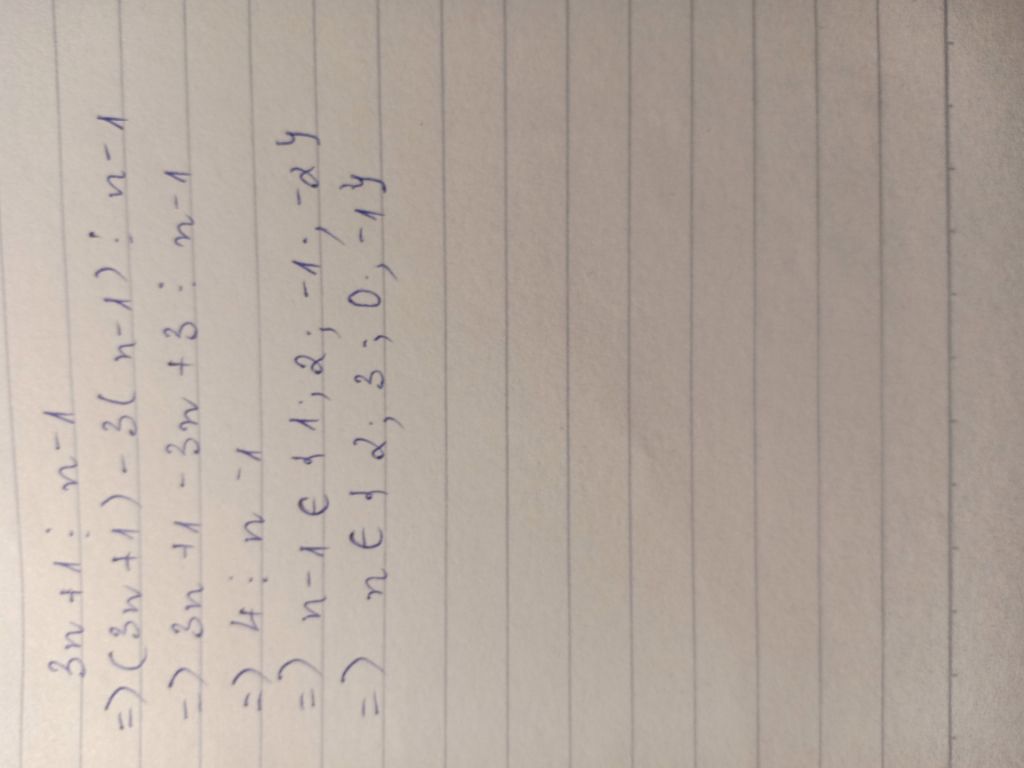 3n+1 ⋮ n-1
=> (3n+1) - 3(n-1) ⋮ n-1
=> 3n+1 - 3n+3 ⋮ n-1
=> 4 ⋮ n-1
=> n-1 ∈ {1; 2; -1; -2}
=> n ∈ {2; 3; 0; -1}